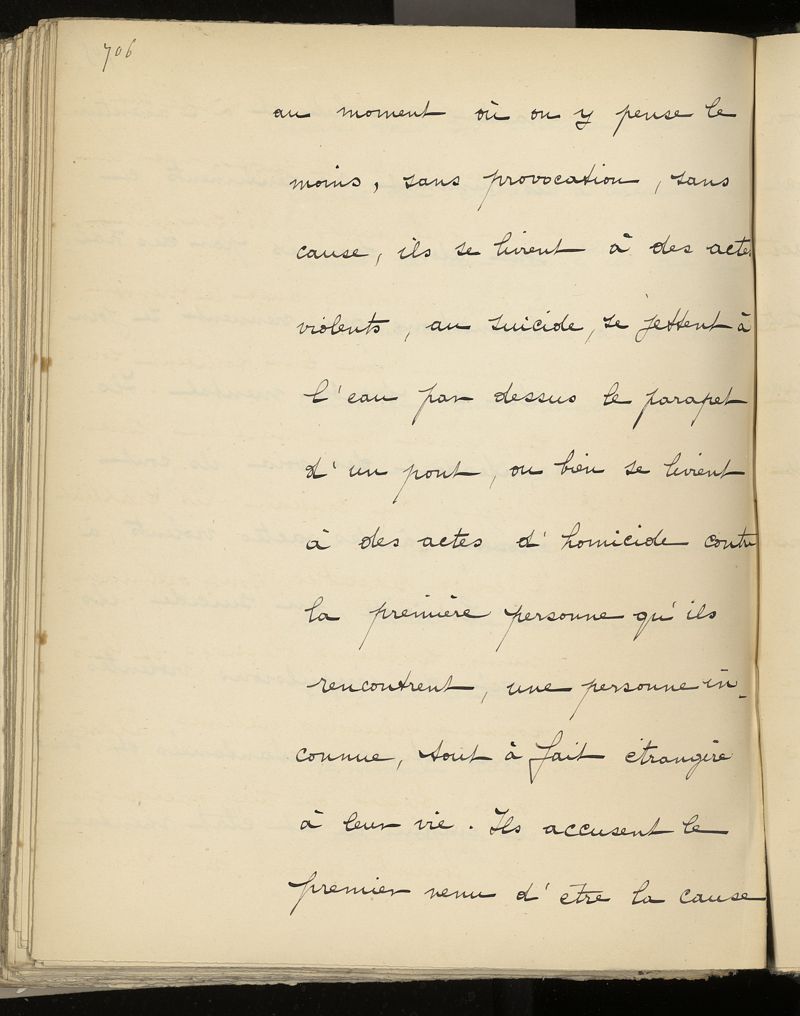 706
au moment où on y pense le
moins, sans provocation, sans
cause, ils se livrent à des actes
violents, au suicide, se jettent à
l'eau par dessus le parapet
d'un pont, ou bien se livrent
à des actes d'homicide contre
la première personne qu'ils
rencontrent, une personne in-
connue, tout à fait étrangère
à leur vie. Ils accusent le
premier venu d'etre la cause